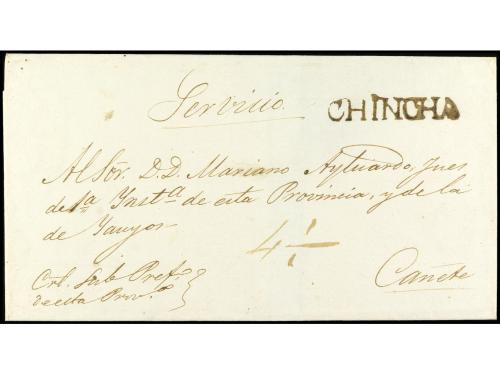 Servicio
CHINCHA
Al Sōr. D.D. Mariano Aytuardo, Jues
de 1ª Ynstª de esta Provincia, y de la
de Yauyos
4 1/1
Crl. Sub Prefº
de esta Provª
Cañete